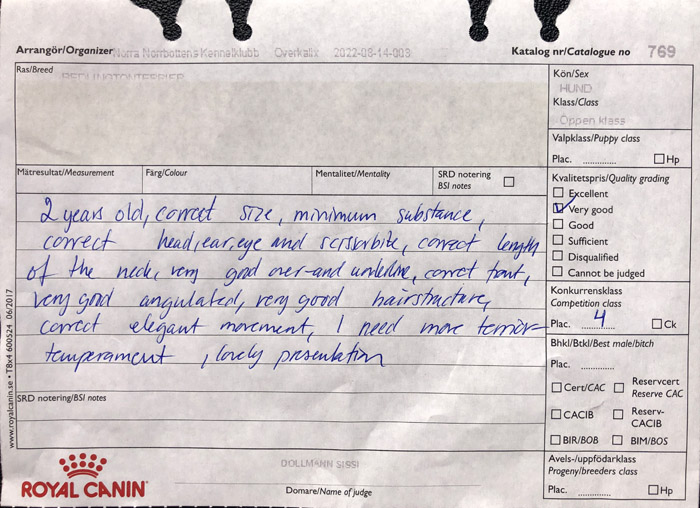 Arrangör/Organizer Norra Norrbottens Kennelklubb Överkalix 2022-08-14-003 Katalog nr/Catalogue no 769
Ras/Breed BEDLINGTONTERRIER
Kön/Sex
HUND
Klass/Class
Öppen klass
Valpklass/Puppy class
Plac. ............. Hp
Mätresultat/Measurement Färg/Colour Mentalitet/Mentality SRD notering
BSI notes
Kvalitetspris/Quality grading
Excellent
Very good
Good
Sufficient
Disqualified
Cannot be judged
2 years old, correct size, minimum substance,
correct head, ear, eye and scissorbite, correct length
of the neck, very good over-and underline, correct front,
very good angulated, very good hairstructure,
correct elegant movement, I need more terrier
temperament, lovely presentation
Konkurrensklass
Competition class
Plac. 4 Ck
Bhkl/Btkl/Best male/bitch
Plac. .............
Cert/CAC Reservcert
Reserve CAC
CACIB Reserv-
CACIB
BIR/BOB BIM/BOS
SRD notering/BSI notes
Avels-/uppfödarklass
Progeny/breeders class
Plac. ............. Hp
DOLLMANN SISSI
Domare/Name of judge
ROYAL CANIN
www.royalcanin.se • T8x4 600524 06/2017